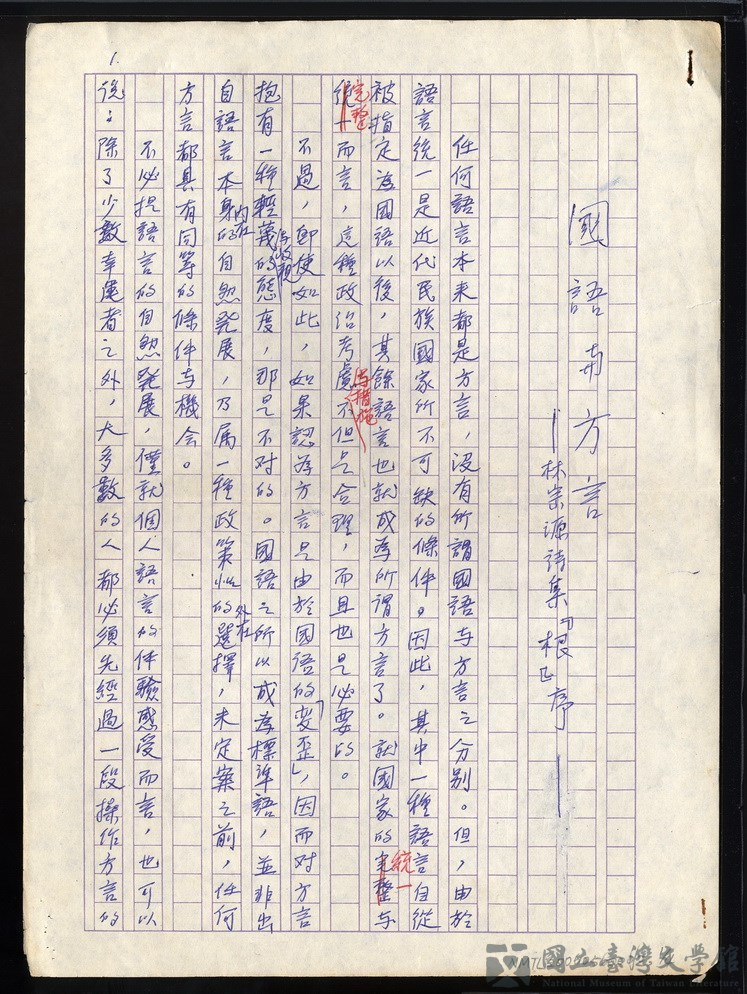 1.
國語與方言
—林宗源詩集『根』序—
任何語言本來都是方言，沒有所謂國語与方言之分別。但，由於
語言統一是近代民族國家所不可缺的條件。因此，其中一種語言自從
被指定為國語以後，其餘語言也就成為所謂方言了。就國家的完整統一与
統一完整而言，這種政治考慮与措施不但是合理，而且也是必要的。
不過，即使如此，如果認為方言是由於國語的「變歪」，因而對方言
抱有一種輕蔑与歧視的態度，那是不対的。國語之所以成為標準語，並非出
自語言本身內在的自然発展，乃属一種政策性的外在選擇，未定案之前，任何
方言都具有同等的條件与機会。
不必提語言的自然発展，僅就個人語言的体驗感受而言，也可以
說：除了少數幸運者之外，大多數的人都必須先經過一段操作方言的
國立臺灣文學館
National Museum of Taiwan Literature